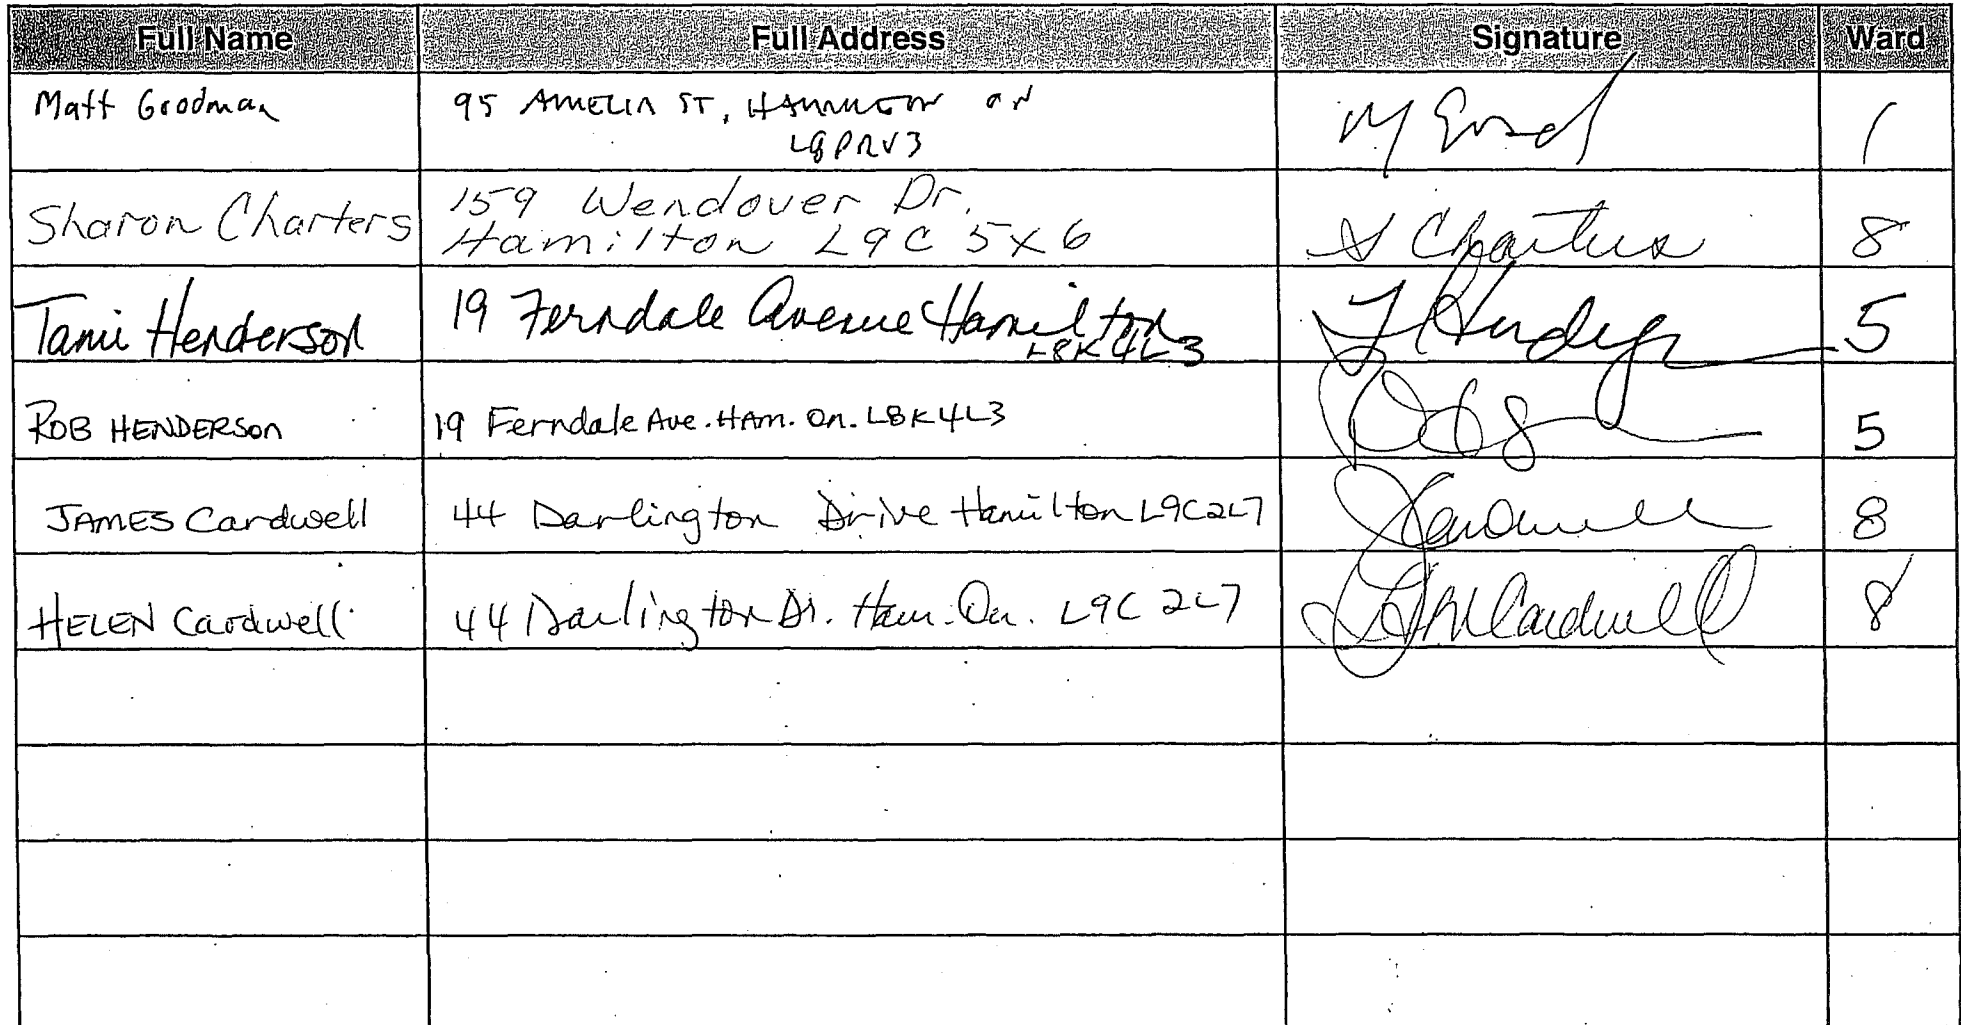 Full Name Full Address Signature Ward
Matt Goodman 95 AMELIA ST, HAMILTON ON 1
Sharon Charters 159 Wendover Dr. S Charters 8
Hamilton L9C 5X6
Tami Henderson 19 Ferndale Avenue Hamilton T Henderson 5
L8K 4L3
ROB HENDERSON 19 Ferndale Ave. HAm. On. L8K 4L3 5
JAMES Cardwell 44 Darlington Drive Hamilton L9C2L7 J Cardwell 8
HELEN Cardwell 44 Darlington Dr. Ham. On. L9C 2L7 H M Cardwell 8